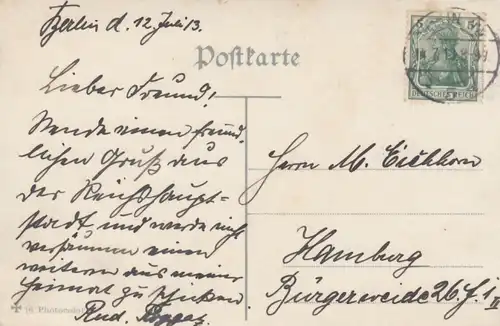 Berlin d. 12 Juli 13.
Postkarte
Lieber Freund!
Sende einen freund-
lichen Gruß aus
der Reichshaupt-
stadt und werde nicht
versäumen einen
weitern aus meiner
Heimat zu schicken
Rud.
Herrn M. Eichhorn
Hamburg
Bürgerweide 26 f. 1
II
5 5
DEUTSCHES REICH